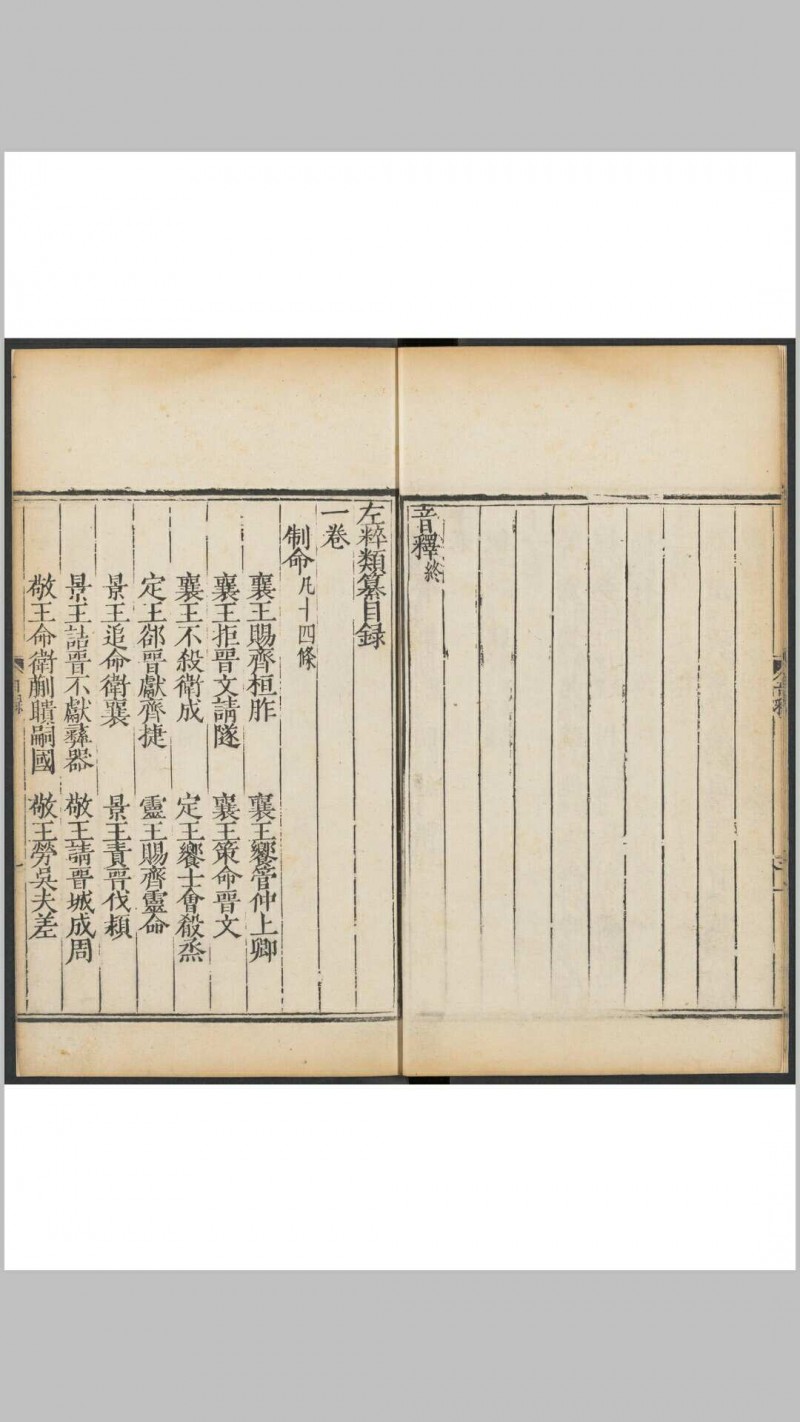 音釋終
左粹類纂目録
一卷
制命凡十四條
襄王賜齊桓胙 襄王饗管仲上卿
襄王拒晉文請隧 襄王策命晉文
襄王不殺衛成 定王饗士會殽烝
定王郤晉獻齊捷 靈王賜齊靈命
景王追命衛襄 景王責晉伐潁
景王詰晉不獻彝器 敬王請晉城成周
敬王命衛蒯聵嗣國 敬王勞吳夫差